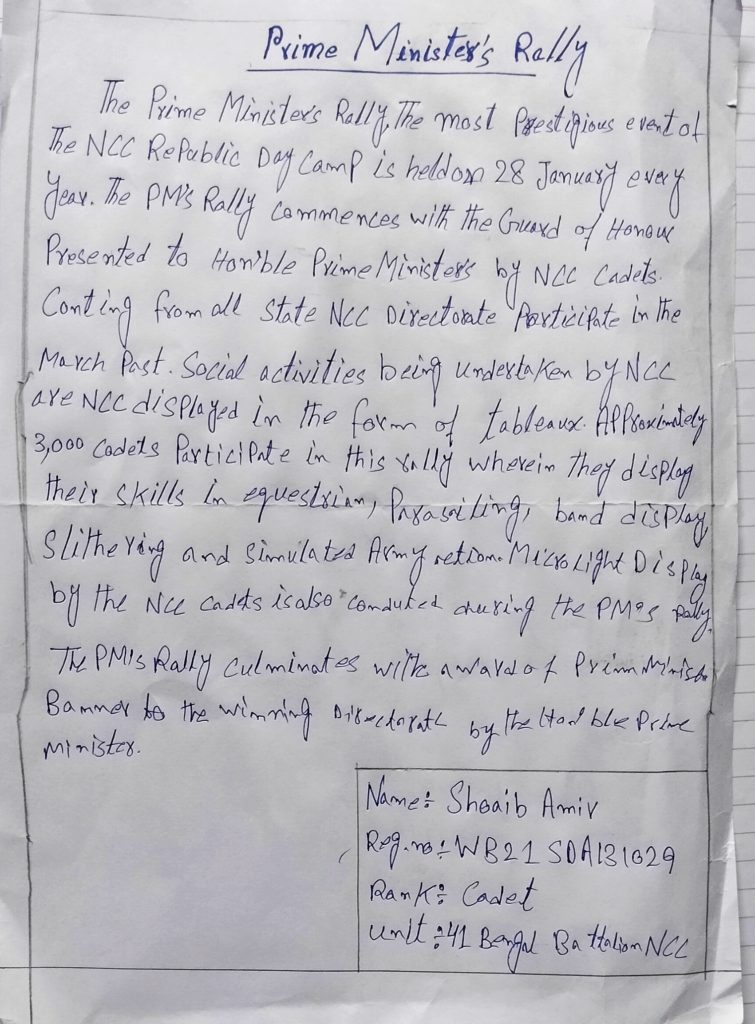 Prime Minister's Rally
The Prime Minister's Rally, The most Prestigious event of
The NCC Republic Day Camp is held on 28 January every
Year. The PM's Rally commences with the Guard of Honour
Presented to Hon'ble Prime Minister's by NCC Cadets.
Conting from all State NCC Directorate Participate in the
March Past. Social activities being undertaken by NCC
are NCC displayed in the form of tableaux. Approximately
3,000 Cadets Participate in this rally wherein they display
their skills in equestrian, Parasailing, band display,
Slithering and Simulated Army action. Microlight Display
by the NCC cadets is also conduted during the PM's Rally.
The PM's Rally culminates with award of Prim Minister
Banner to the winning Directorate by the Hon'ble Prime
Minister.
Name: Shoaib Amir
Reg.no: WB21SDA131029
Rank: Cadet
Unit: 41 Bengal Battalion NCC